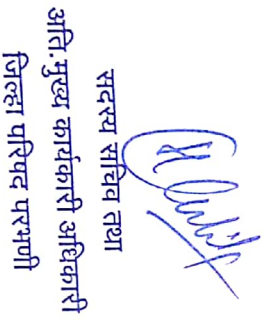 सदस्य सचिव तथा
अति.मुख्य कार्यकारी अधिकारी
जिल्हा परिषद परभणी